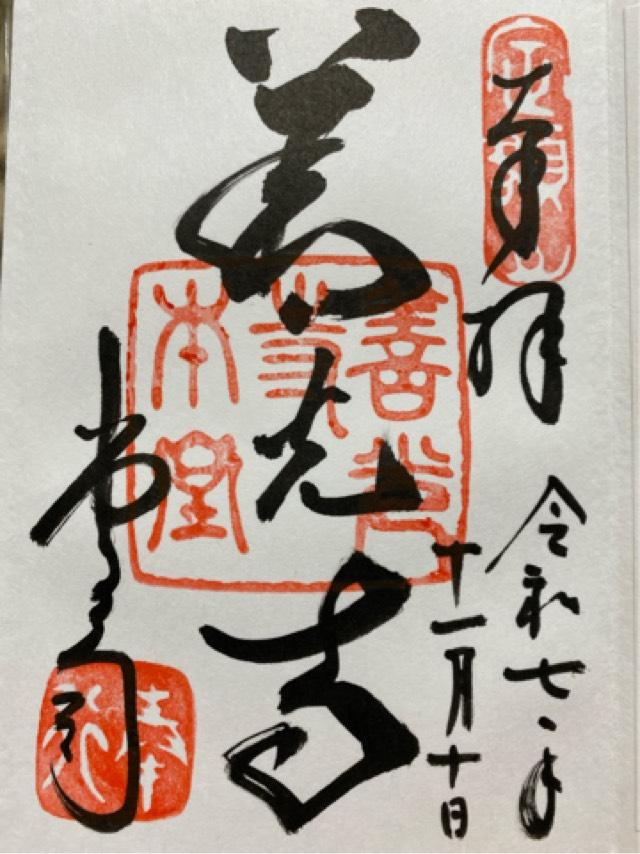 定額山
奉拝
令和七年
十一月十日
善光寺
善光寺本堂
堂司